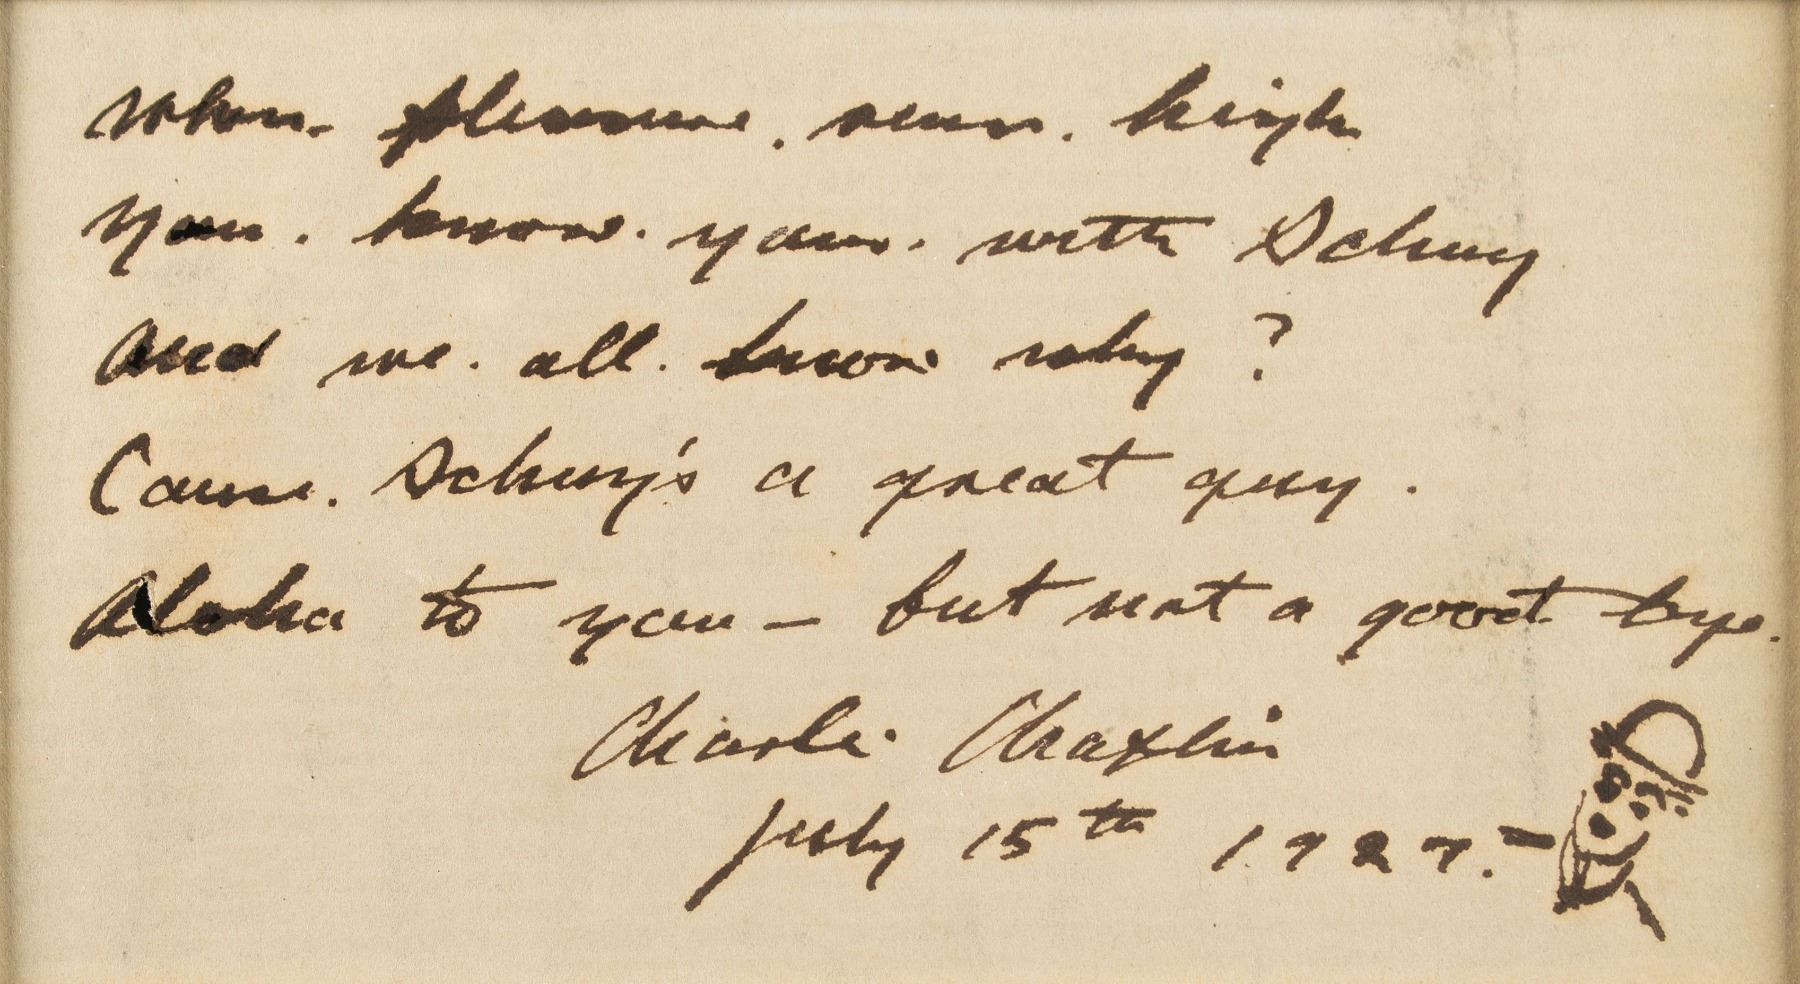 When pleasure. runs. high
You. know. your. with Schuy
And we. all. know why ?
Cause. Schuy's a great guy.
Aloha to you - but not a good bye.
Charlie Chaplin
July 15th 1927. -